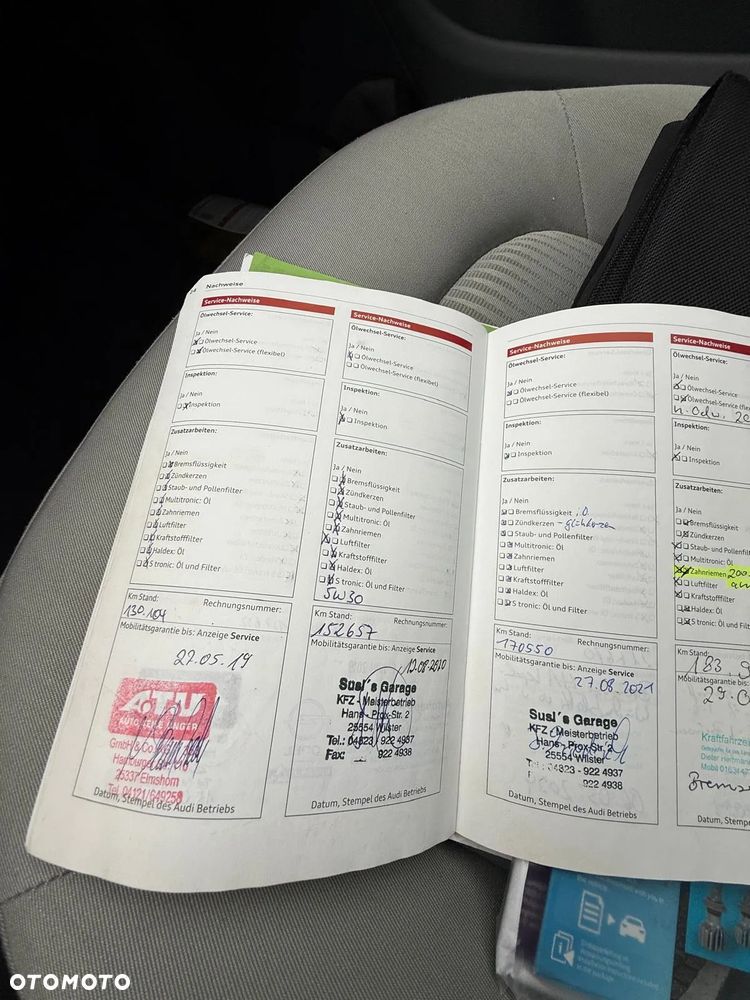 Nachweise
Service-Nachweise
Ölwechsel-Service:
Ja / Nein
Ölwechsel-Service
Ölwechsel-Service (flexibel)
Inspektion:
Ja / Nein
Inspektion
Zusatzarbeiten:
Ja / Nein
Bremsflüssigkeit
Zündkerzen
Staub- und Pollenfilter
Multitronic: Öl
Zahnriemen
Luftfilter
Kraftstofffilter
Haldex: Öl
S tronic: Öl und Filter
Km Stand:
Rechnungsnummer:
130104
Mobilitätsgarantie bis: Anzeige Service
27.05.19
A.T.U
AUTO TEILE UNGER
GmbH & Co.
25337 Elmshorn
Tel. 04121/649250
Datum, Stempel des Audi Betriebs
Service-Nachweise
Ölwechsel-Service:
Ja / Nein
Ölwechsel-Service
Ölwechsel-Service (flexibel)
Inspektion:
Ja / Nein
Inspektion
Zusatzarbeiten:
Ja / Nein
Bremsflüssigkeit
Zündkerzen
Staub- und Pollenfilter
Multitronic: Öl
Zahnriemen
Luftfilter
Kraftstofffilter
Haldex: Öl
S tronic: Öl und Filter
5W30
Km Stand:
Rechnungsnummer:
152657
Mobilitätsgarantie bis: Anzeige Service
Susi´s Garage
KFZ - Meisterbetrieb
Hans - Prox-Str. 2
25554 Wilster
Tel.: 04823 922 4937
Fax: 922 4938
Datum, Stempel des Audi Betriebs
Service-Nachweise
Ölwechsel-Service:
Ja / Nein
Ölwechsel-Service
Ölwechsel-Service (flexibel)
Inspektion:
Ja / Nein
Inspektion
Zusatzarbeiten:
Ja / Nein
Bremsflüssigkeit i.O
Zündkerzen - glühkerzen
Staub- und Pollenfilter
Multitronic: Öl
Zahnriemen
Luftfilter
Kraftstofffilter
Haldex: Öl
S tronic: Öl und Filter
Km Stand:
Rechnungsnummer:
170550
Mobilitätsgarantie bis: Anzeige Service
27.08.2021
Susi´s Garage
KFZ - Meisterbetrieb
Hans - Prox-Str. 2
25554 Wilster
Tel.: 04823 - 922 4937
922 4938
Datum, Stempel des Audi Betriebs
Service-Nachweise
Ölwechsel-Service:
Ja / Nein
Ölwechsel-Service
Ölwechsel-Service
Inspektion:
Ja / Nein
Inspektion
Zusatzarbeiten:
Ja / Nein
Bremsflüssigkeit
Zündkerzen
Staub- und Pollenf
Multitronic: Öl
Zahnriemen
Luftfilter
Kraftstofffilter
Haldex: Öl
S tronic: Öl und
Km Stand:
183
Mobilitätsgarantie bis:
Kraftfahrze
Datum, Stempe
OTOMOTO